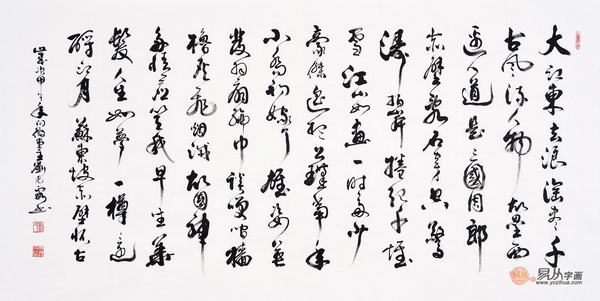 大江東去浪淘盡千
古風流人物故壘西
邊人道是三國周郎
赤壁亂石穿空驚
濤拍岸捲起千堆
雪江山如畫一時多少
豪傑遙想公瑾當年
小喬初嫁了雄姿英
發羽扇綸巾談笑間檣
櫓灰飛烟滅故國神
多情應笑我早生華
髮人生如夢一樽還
酹江月 蘇東坡赤壁懷古
易从字画
www.yczihua.com